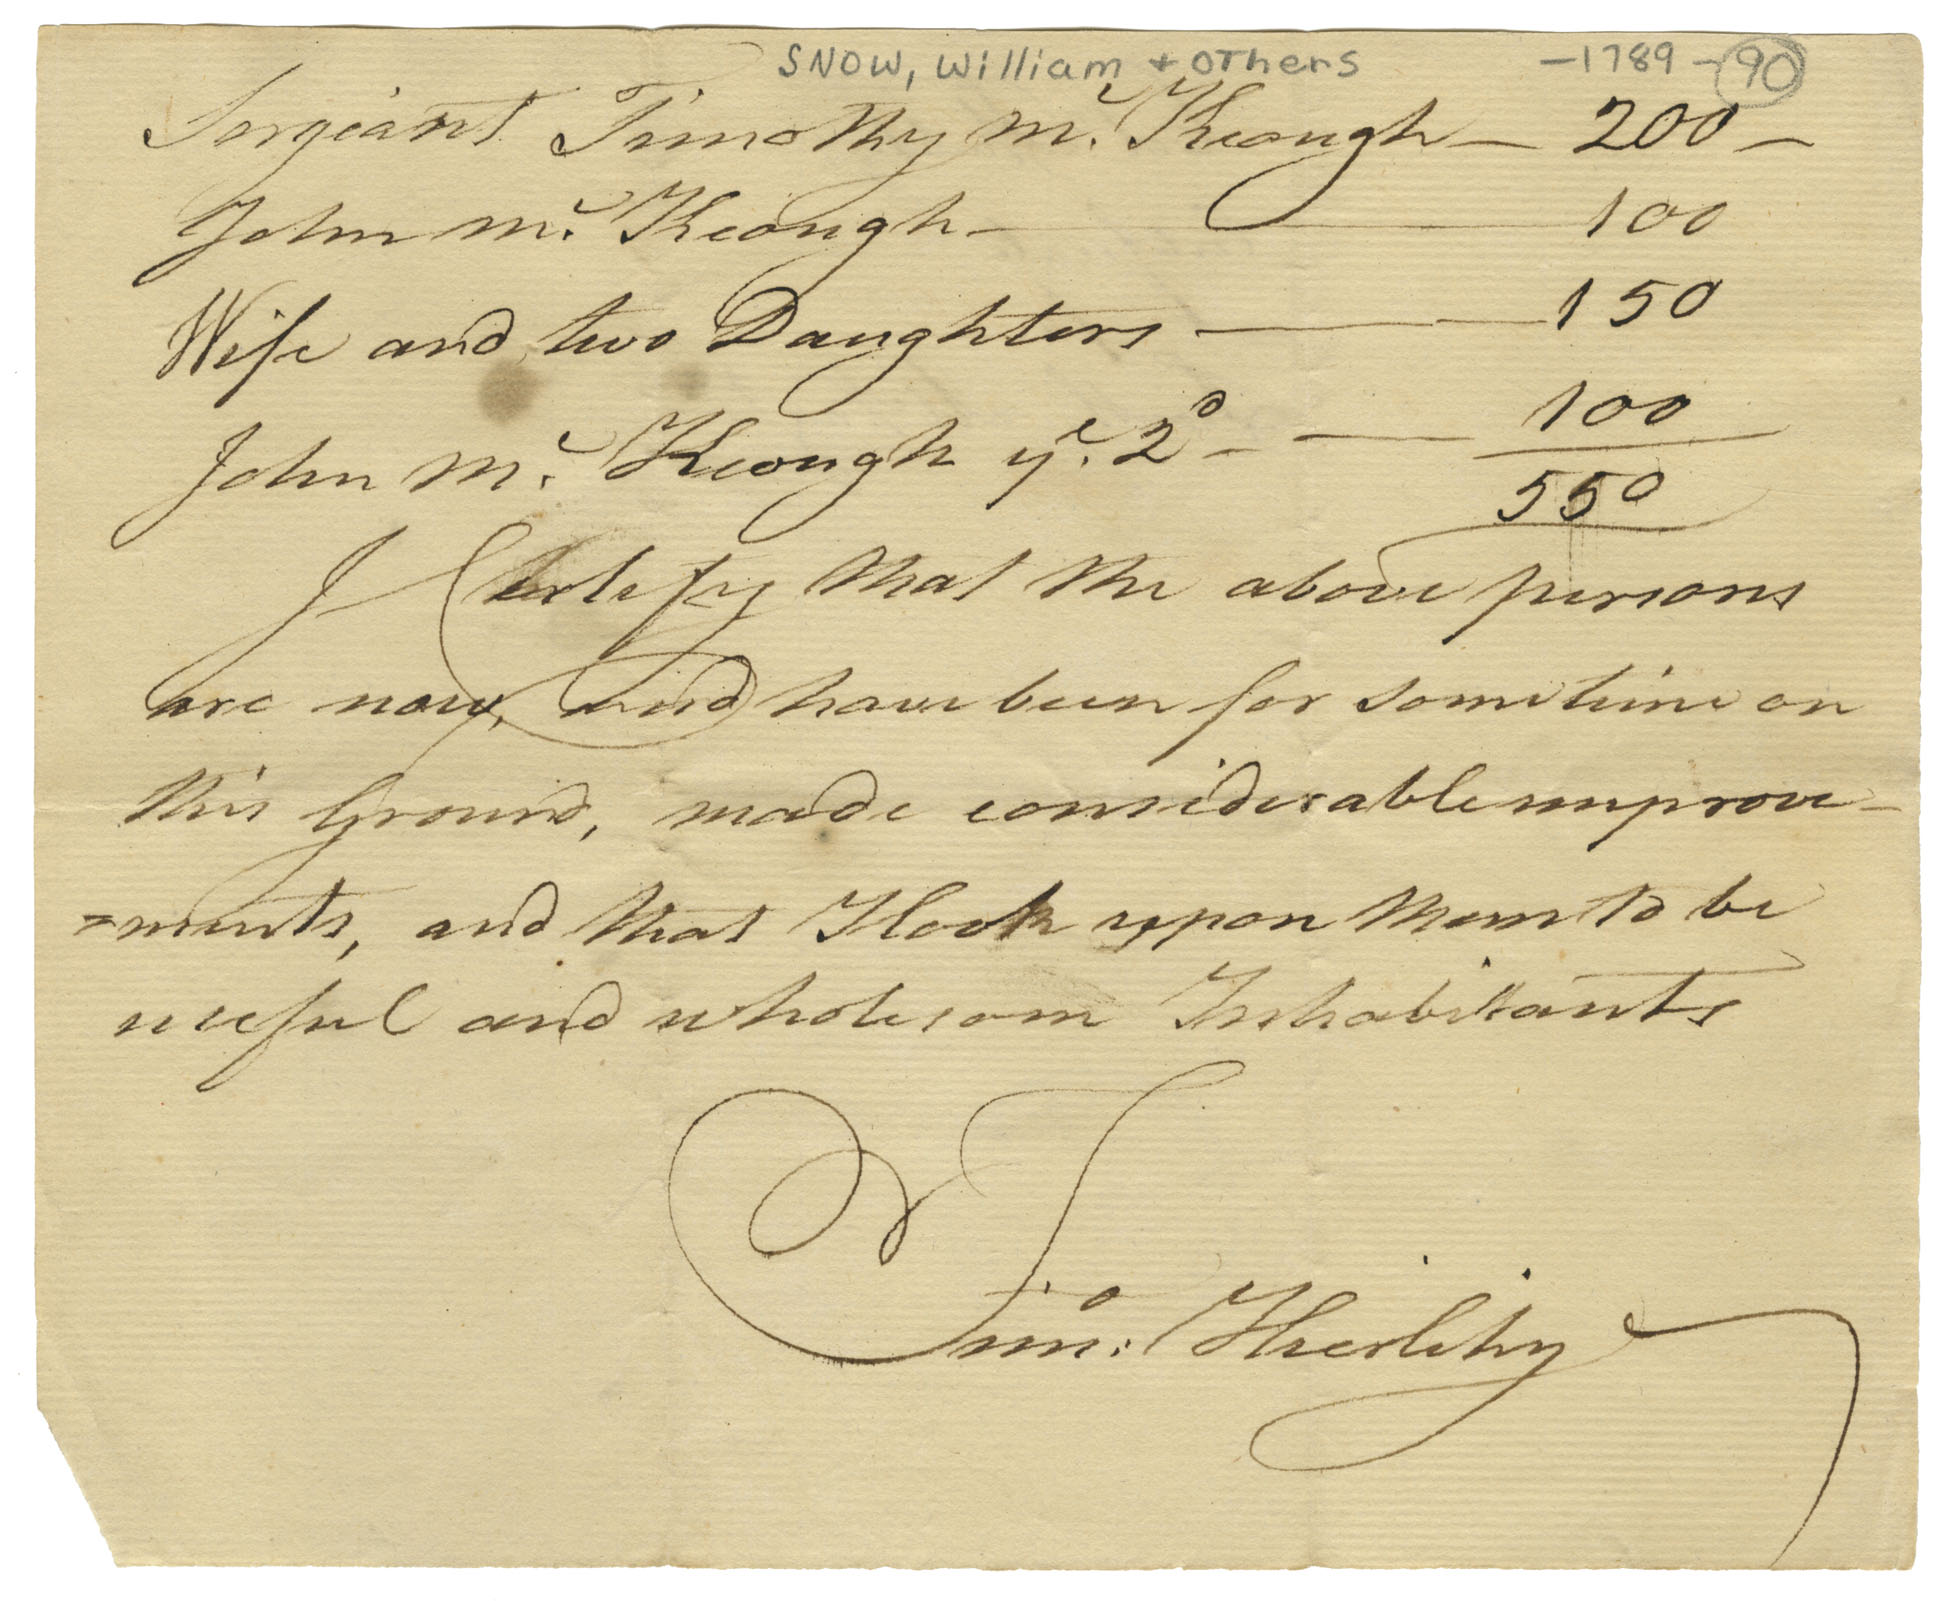 SNOW, William + OTHers —1789— 90
Sergeant Timothy Mc. Keough — 200 —
John Mc. Keough — 100
Wife and two Daughters — 150
John Mc. Keough ye. 2d — 100
550
I Certify that the above persons
are now, and have been for sometime on
this Ground, made considerable improve-
=ments, and that I look upon them to be
useful and wholesom Inhabitants
Timo: Hierlihy